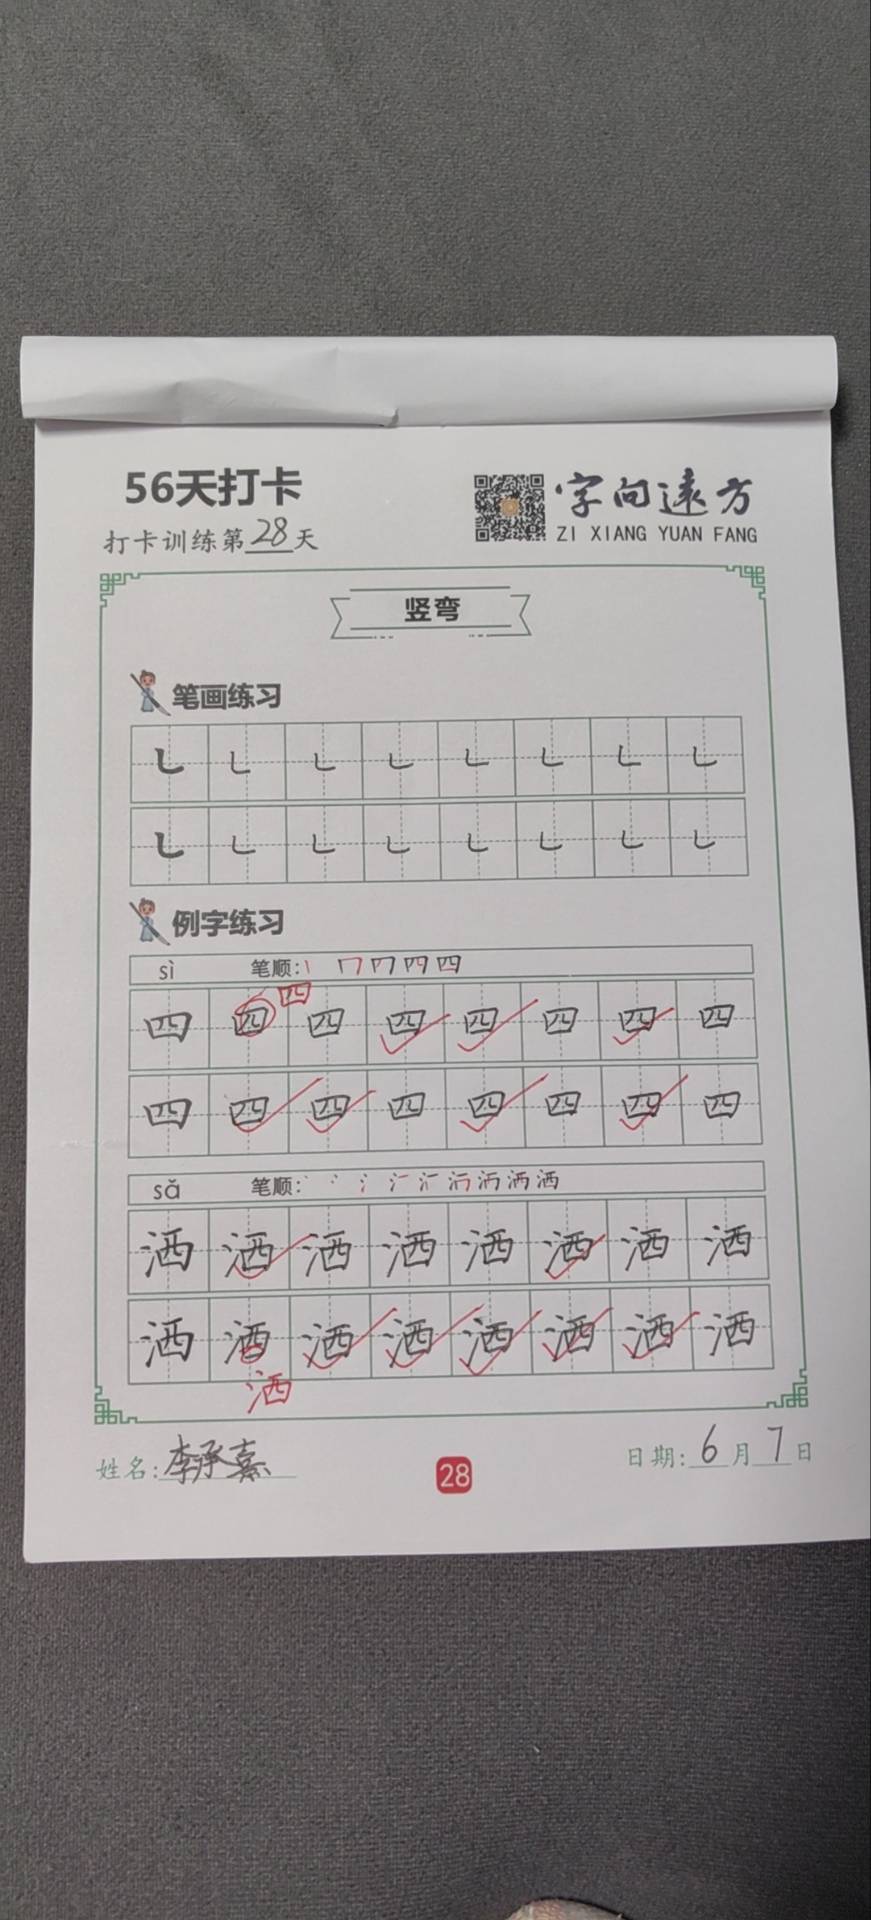 56天打卡
字向远方
打卡训练第28天
ZI XIANG YUAN FANG
竖弯
笔画练习
例字练习
sì 笔顺:
四 四 四 四 四 四 四 四
四
四 四 四 四 四 四 四 四
sǎ 笔顺:
洒 洒 洒 洒 洒 洒 洒 洒
洒 洒 洒 洒 洒 洒 洒 洒
洒
姓名:李承熹
28
日期:6月7日